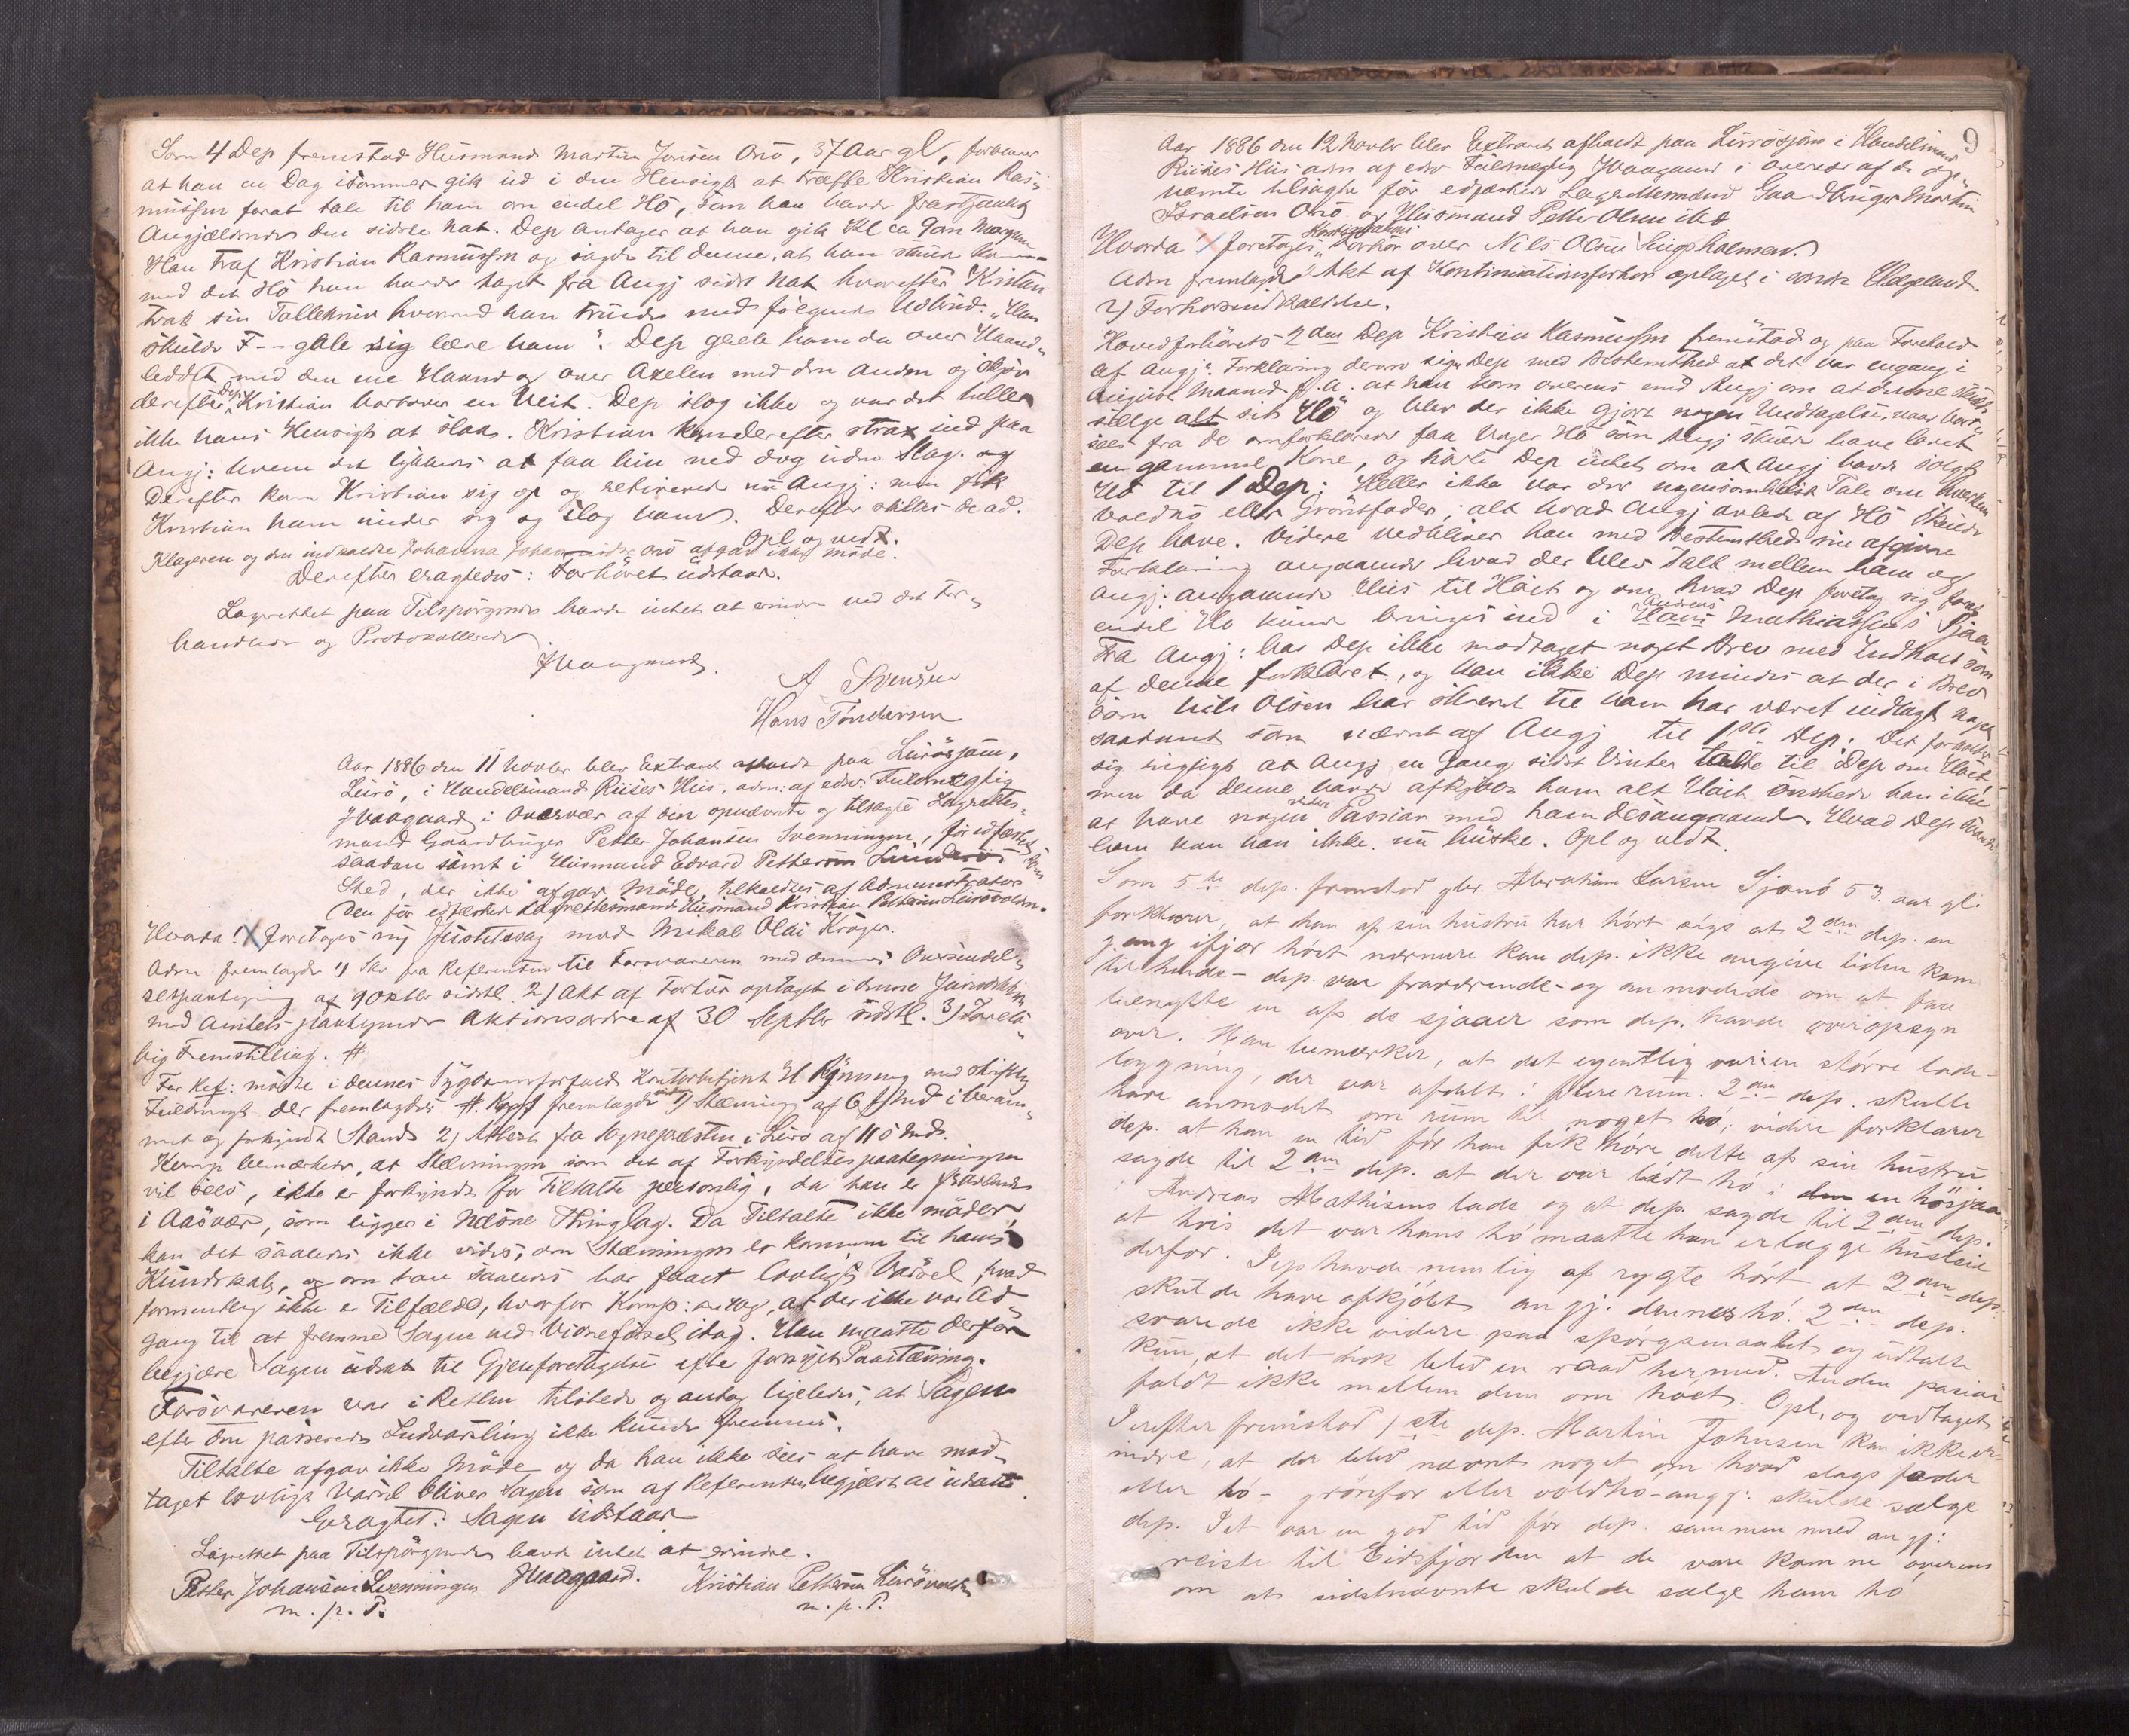 Som 4 Dep fremstod Husmand Martin Jonsen Onø, 37 Aar gl, forklarer
at han en Dag isommer gik ud i den Hensigt at træffe Kristian Ras-
mussen forat tale til ham om endel Hø, som han havde frastjaalet
Angjældende den sidste Nat. Dep antager at han gik Kl ca 9 om Morgen
Han traf Kristian Rasmussen og sagde til denne, at han skulde komme
med det Hø han havde taget fra Angj sidst Nat hvorefter Kristian
trak sin Tollekniv hvormed han truede med følgende Udbrud: "Han
skulde F-- gale sig lære ham". Dep greb ham da over Haand-
leddet med den ene Haand og over Axelen med den anden og skjøv
derefter Dep Kristian bortover en Veit. Dep slog ikke og var det heller
ikke hans Hensigt at slaas. Kristian kom derefter strax ind paa
Angj: hvem det lykkedes at faa ham ned dog uden Slag. og
Derefter kom Kristian sig op og retirerede nu Angj: men fik
Kristian ham under sig og slog ham. Derefter skiltes de ad.
Opl og vedt.
Klageren og den indkaldte Johanna Onø afgav ikke møde.
Derefter eragtedes: Forhøret udstaar.
Lagrettet paa Tilspørgende havde intet at erindre ved det For-
handlede og Protokollerede.
JHaagaard.
A Svensen
Hans Tøndersen
Aar 1886 den 11 Novbr blev Extraret afholdt paa Lurøsjøen,
Lurø, i Handelsmand Riises Hus, adm: af edsv: Fuldmægtig
JHaagaard i Overvær af den opnævnte og tilsagte Lagrettes-
mand Gaardbruger Petter Johansen Svenningen, før edfæstet som
saadan samt i Husmand Edvard Pettersen
Sted, der ikke afgav Møde, tilkaldtes af Administrator
den før edfæstede Lagrettesmand Husmand Kristian Pettersen Lurøvolden.
Hvorda: X foretoges ny Justitssag mod Mikal Olai Krøger.
Adm fremlagde 1) Skr fra Referenten til Forsvareren med dennes Oversendel-
sespaategning af 9 Oktbr sidstl. 2) Akt af Forhør optaget i denne Jurisdiktion
med Amtets paategnede Aktionsordre af 30 Septbr sidstl. 3) Foreløb-
big Fremstilling. #
For Ref: mødte i dennes Sygdomsforfald Kontorbetjent H Rynning med skriftlig
Fuldmagt der fremlagdes #. Komp fremlagde 1) Stævning af 6 ds i beram-
met og forkyndt Stand 2) Attest fra Sognepræsten i Lurø af 11 ds.
Komp bemærkede, at Stævningen som det af Forkyndelsespaategningen
vil sees, ikke er forkyndt for Tiltalte personlig, da han er fraværende
i Aasvær, som ligger i Næsne Thinglag. Da Tiltalte ikke møder,
kan det saaledes ikke vides, om Stævningen er kommen til hans
Kundskab, og om han saaledes har faaet lovligt Varsel, hvad
formentlig ikke er Tilfælde, hvorfor Komp: antog, at der ikke var Ad-
gang til at fremme Sagen ved Vidneførsel idag. Han maatte derfor
begjære Sagen udsat til Gjenforetagelse efter fornyet Paastævning.
Forsvareren var i Retten tilstede og antog ligeledes, at Sagen
efter den passerede Indvarsling ikke kunde fremmes.
Tiltalte afgav ikke Møde og da han ikke sees at have mod-
taget lovligt Varsel bliver Sagen som af Referenten begjært at udsætte.
Eragtet: Sagen udstaar
Lagrettet paa Tilspørgende havde intet at erindre.
Petter Johansen Svenningen JHaagaard. Kristian Pettersen Lurøvolden
m. p. P. m. p. P.
9
Aar 1886 den 12 Novbr blev Extraret afholdt paa Lurøsjøen i Handelsmand
Riises Hus adm af edsv Fuldmægtig JHaagaard i overvær af de op-
nævnte tilsagte før edfæstede Lagrettesmænd Gaardbruger Martin
Israelsen Onø og Husmand Petter Olsen ibd
Hvorda X foretoges Kontinuations Forhør over Nils Olsen Lingholmen.
Adm fremlagde 1) Akt af Kontinuationsforhør optaget i søndre Helgeland.
2) Forhørsindkaldelse.
Hovedforhørets 2den Dep Kristian Rasmussen fremstod og paa Forehold
af Angj: Forklaring derom siger Dep med Bestemthed at det var engang i
August Maaned f.A. at han kom overens med Angj om at denne skulde
sælge alt sit Hø og blev der ikke gjort nogen Undtagelse, naar bort-
sees fra de omforklarede faa Voger Hø som Angj skulde have lovet
en gammel Kone, og hørte Dep intet om at Angj havde solgt
Hø til 1 Dep: Heller ikke var der nogensomhelst Tale om hverken
Voldhø eller Grønfoder; alt hvad Angj avlede af Hø skulde
Dep have. Videre vedbliver han med Bestemthed sin afgivne
Forklaring angaaende hvad der blev talt mellem ham og
Angj: angaaende Hus til Høiet og om hvad Dep foretog sig forat
endel Hø kunde bringes ind i Hans Andreas Mathiassens Sjaa
Fra Angj: har Dep ikke modtaget noget Brev med Indhold som
af denne forklaret, og kan ikke Dep mindes at der i Brev
som Nils Olsen har skrevet til ham har været indlagt noget
saadant som nævnt af Angj til 1ste Dep. Det forholder
sig rigtigt at Angj en Gang sidst Vinter talte til Dep om Høiet
men da denne havde afkjøbt ham alt Høiet ønskede han ikke
at have nogen videre Passiar med ham desangaaende. Hvad Dep svarede
ham kan han ikke nu huske. Opl og vedt.
Som 5te dep. fremstod gbr. Abraham Larsen Sjonø 53 aar gl.
forklarer, at han af sin hustru har hørt sige at 2den dep. en
gang ifjor høst nærmere kan dep. ikke angive tiden kom
til hende - dep. var fraværende - og anmodede om at faa
benytte en af de sjaaer som dep. havde overopsyn
over. Han bemærker, at det egentlig var en større lade-
bygning, der var afdelt i flere rum. 2den dep. skulle
have anmodet om rum til noget hø; videre forklarer
dep. at han en tid før han fik høre dette af sin hustru
sagde til 2den dep. at der var lådt hø i en høsjaa
Andreas Mathisens lade og at dep. sagde til 2den dep.
at hvis det var hans hø maatte han erlægge husleie
derfor. Dep havde nemlig af rygte hørt at 2den dep.
skulde have afkjøbt angj. dennes hø. 2den dep.
svarede ikke videre paa spørgsmaalet og udtalte
kun, at det nok blev en raad hermed. Anden passiar
faldt ikke mellem dem om høet. Opl. og vedtaget
Derefter fremstod 1ste dep. Martin Johnsen kan ikke er-
indre, at der blev nævnt noget om hvad slags foder
eller hø - grønfor eller voldhø - angj: skulde sælge
dep. Det var en god tid før dep. sammen med angj:
reiste til Eidsfjorden at de vare komne overens
om at sidstnævnte skulde sælge ham hø